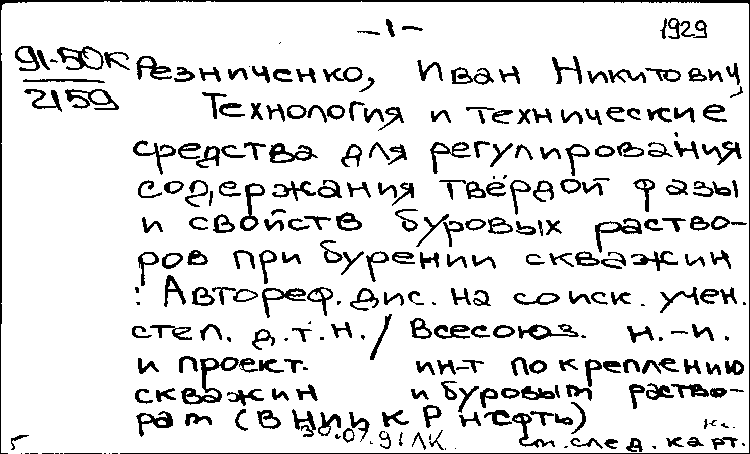 -1-
1929
91-50К
2159
Резниченко, Иван Никитович
Технология и технические
средства для регулирования
содержания твёрдой фазы
и свойств буровых раство-
ров при бурении скважин
: Автореф. дис. на соиск. учен.
степ. д.т.н. / Всесоюз. н.-и.
и проект. ин-т по креплению
скважин и буровым раство-
рам (ВНИИКРнефть)
30.07.91 ЛК
см. след. карт.
5